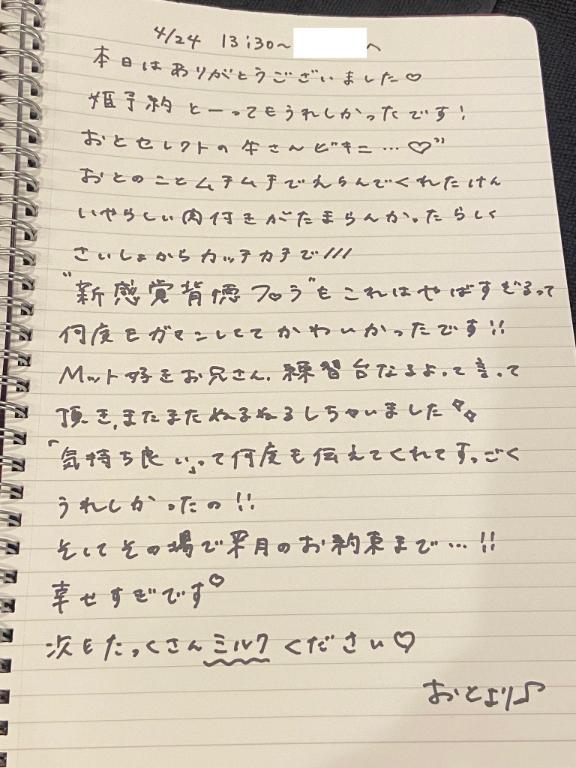 4/24 13:30~ へ
本日はありがとうございました♡
姫予約 とーってもうれしかったです!
おとセレクトの牛さんビキニ…♡"
おとのことムチムチでえらんでくれたけん
いやらしい肉付きがたまらんかったらしく
さいしょからカッチカチで///
"新感覚背徳フロラ"もこれはやばすぎるって
何度もガマンしててかわいかったです!!
Mット好きお兄さん、練習台なるよって言って
頂き、またまたぬるぬるしちゃいました
「気持ち良い」って何度も伝えてくれてすっごく
うれしかったの!!
そしてその場で来月のお約束まで…!!
幸せすぎです♡
次もたっくさんミルクください♡
おとより♪